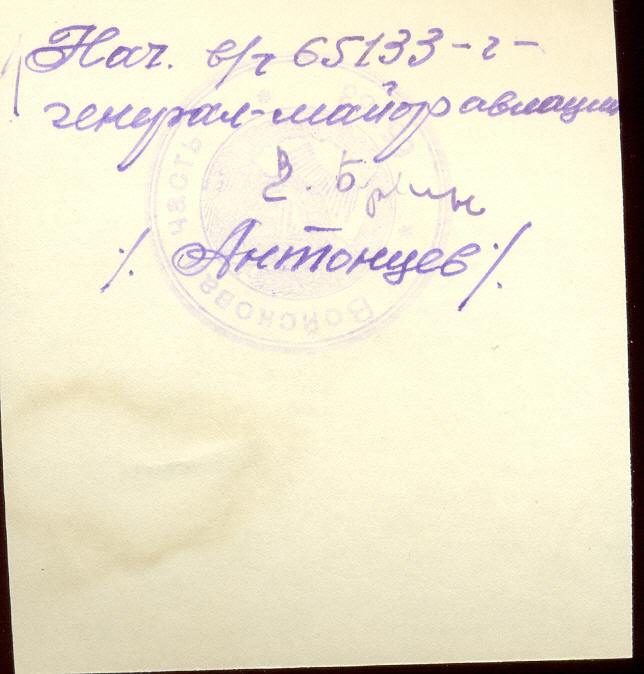 Нач. в/ч 65133-г-
генерал-майор авиации
/. Антонцев /.
Войсковая часть